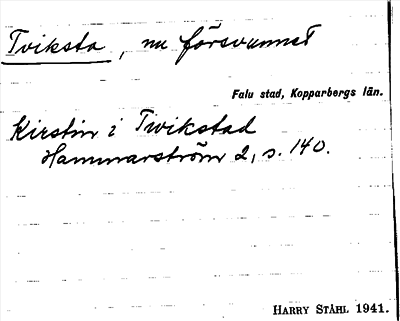 Tviksta, nu försvunnet
Falu stad, Kopparbergs län.
Kirstin i Twikstad
Hammarström 2, s. 140.
HARRY STÅHL 1941.